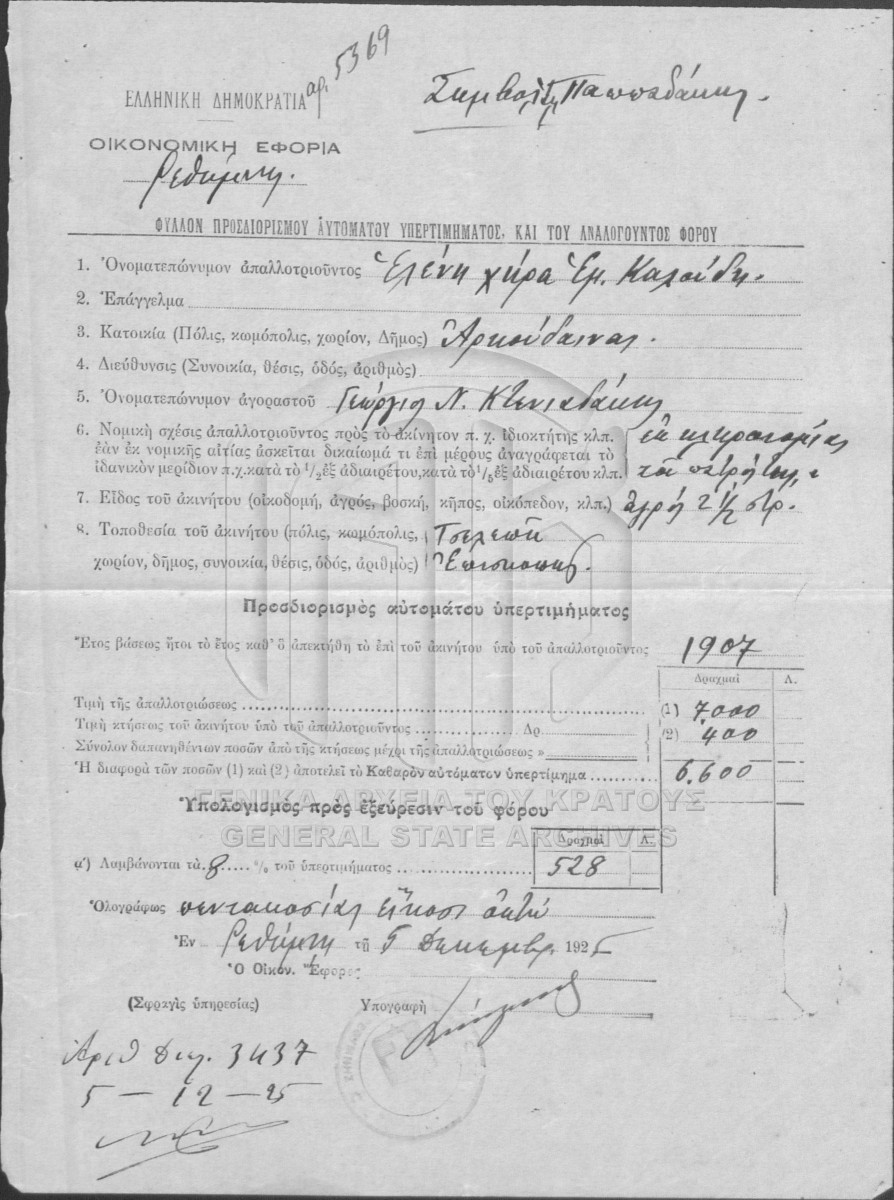 αρ. 5369
Συμβολ. Παππαδάκης.
ΕΛΛΗΝΙΚΗ ΔΗΜΟΚΡΑΤΙΑ
ΟΙΚΟΝΟΜΙΚΗ ΕΦΟΡΙΑ
Ρεθύμνης.
ΦΥΛΛΟΝ ΠΡΟΣΔΙΟΡΙΣΜΟΥ ΑΥΤΟΜΑΤΟΥ ΥΠΕΡΤΙΜΗΜΑΤΟΣ, ΚΑΙ ΤΟΥ ΑΝΑΛΟΓΟΥΝΤΟΣ ΦΟΡΟΥ
1. Ὀνοματεπώνυμον ἀπαλλοτριοῦντος Ἑλένη χήρα Ἐμ. Καλούδη.
2. Ἐπάγγελμα
3. Κατοικία (Πόλις, κωμόπολις, χωρίον, Δῆμος) Ἀρκούδαινας.
4. Διεύθυνσις (Συνοικία, θέσις, ὁδός, ἀριθμὸς)
5. Ὀνοματεπώνυμον ἀγοραστοῦ Γεώργιος Ν. Κτενιαδάκης
6. Νομικὴ σχέσις ἀπαλλοτριοῦντος πρὸς τὸ ἀκίνητον π. χ. ἰδιοκτήτης κλπ. ἐκ κληρονομίας
ἐὰν ἐκ νομικῆς αἰτίας ἀσκεῖται δικαίωμά τι ἐπὶ μέρους ἀναγράφεται τὸ
ἰδανικὸν μερίδιον π.χ. κατὰ τὸ 1/2 ἐξ ἀδιαιρέτου, κατὰ τὸ 1/5 ἐξ ἀδιαιρέτου κλπ. τοῦ πατρός της
7. Εἶδος τοῦ ἀκινήτου (οἰκοδομή, ἀγρός, βοσκή, κῆπος, οἰκόπεδον, κλπ.) ἀγρός 2 1/2 στρ.
8. Τοποθεσία τοῦ ἀκινήτου (πόλις, κωμόπολις, Τσελεπῆ
χωρίον, δῆμος, συνοικία, θέσις, ὁδός, ἀριθμὸς) Ἐπισκοπῆς.
Προσδιορισμὸς αὐτομάτου ὑπερτιμήματος
Ἔτος βάσεως ἤτοι τὸ ἔτος καθ' ὃ ἀπεκτήθη τὸ ἐπὶ τοῦ ἀκινήτου ὑπὸ τοῦ ἀπαλλοτριοῦντος 1907
Δραχμαὶ Λ.
Τιμὴ τῆς ἀπαλλοτριώσεως (1) 7000
Τιμὴ κτήσεως τοῦ ἀκινήτου ὑπὸ τοῦ ἀπαλλοτριοῦντος Δρ. (2) 400
Σύνολον δαπανηθέντων ποσῶν ἀπὸ τῆς κτήσεως μέχρι τῆς ἀπαλλοτριώσεως »
Ἡ διαφορὰ τῶν ποσῶν (1) καὶ (2) ἀποτελεῖ τὸ Καθαρὸν αὐτόματον ὑπερτίμημα 6.600
ΓΕΝΙΚΑ ΑΡΧΕΙΑ ΤΟΥ ΚΡΑΤΟΥΣ
Ὑπολογισμὸς πρὸς ἐξεύρεσιν τοῦ φόρου
GENERAL STATE ARCHIVES
Δραχμαὶ Λ.
α') Λαμβάνονται τὰ 8 % τοῦ ὑπερτιμήματος 528
Ὁλογράφως πεντακοσίας εἴκοσι ὀκτώ
Ἐν Ρεθύμνῃ τῇ 5 Δεκεμβρ. 1925
Ὁ Οἰκον. Ἔφορος
(Σφραγὶς ὑπηρεσίας) Υπογραφὴ
Ἀριθ Διπ. 3437
5 - 12 - 25